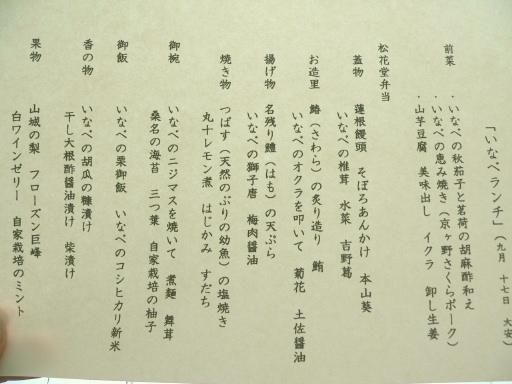 「いなべランチ」（九月 十七日 大安）
前菜
・いなべの秋茄子と茗荷の胡麻酢和え
・いなべの恵み焼き（京ヶ野さくらポーク）
・山芋豆腐 美味出し イクラ 卸し生姜
松花堂弁当
蓋物 蓮根饅頭 そぼろあんかけ 本山葵
いなべの椎茸 水菜 吉野葛
お造里 鰆（さわら）の炙り造り 鮪
いなべのオクラを叩いて 菊花 土佐醤油
揚げ物 名残り鱧（はも）の天ぷら
いなべの獅子唐 梅肉醤油
焼き物 つばす（天然のぶりの幼魚）の塩焼き
丸十レモン煮 はじかみ すだち
御椀 いなべのニジマスを焼いて 煮麺 舞茸
桑名の海苔 三つ葉 自家栽培の柚子
御飯 いなべの栗御飯 いなべのコシヒカリ新米
香の物 いなべの胡瓜の糠漬け
干し大根酢醤油漬け 柴漬け
果物 山城の梨 フローズン巨峰
白ワインゼリー 自家栽培のミント